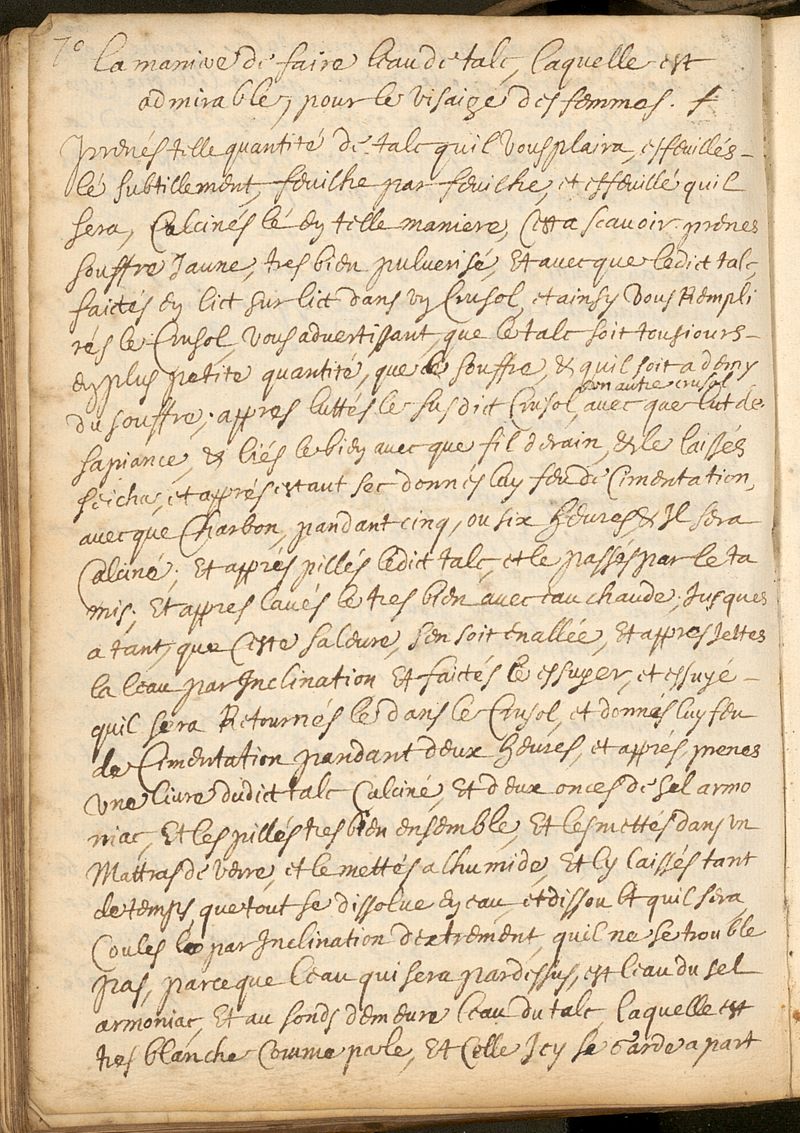 70
La maniere de faire leau de talc, laquelle est
admirable, pour le visaige des femmes. f
prenés telle quantité de talc quil vous plaira, effeuillés-
lé subtillement, feuilhe par feuilhe, et effeuillé quil
sera, Calcinés lé en telle maniere, Cest a scavoir. prenes
souffre Jaune, tres bien pulverisé, Et avecque ledict talc,
faictés en lict sur lict dans un Crusol, et ainsy vous Rempli
rés le Crusol, vous advertissant, que le talc soit tousiours-
en plus petite quantité, que le souffre, & quil soit a demy
du souffre; appres luttés le susdict Crusol, avecque lut de
son autre crusol
sapiance, & liés le bien avecque fil derain, & le laissés
seicher, et apprés estant sec donnés luy feu de Cimentation,
avecque Charbon, pandant cinq, ou six heures, & Il sera
Calciné; Et apprés pillés ledict talc, et le passés par le ta
mis; Et appres lavés le tres bien avec eau chaude, Jusques
a tant, que Ceste saleure, sen soit enallée, Et appres Jettes
la leau par Inclination Et faictés le essuyer, et essuyé-
quil sera Retournés le dans le Crusol, et donnés luy feu
de Cimentation pandant deux heures, et apprés, prenes
une livre dudict talc Calciné, Et deux onces de sel armo
niac, Et les pillés tres bien ensemble, Et les mettés dans un
Mattras de verre, et le mettés a lhumide, Et ly laissés tant
de temps, que tout se dissolve en eau, et dissoult quil sera
Coules le par Inclination dextrement, quil ne se trouble
pas, parce que leau qui sera pardessus, est leau du sel
armoniac, Et au fonds demeure leau du talc, laquelle est
tres blanche Comme parle, Et Celle Icy se Garde apart